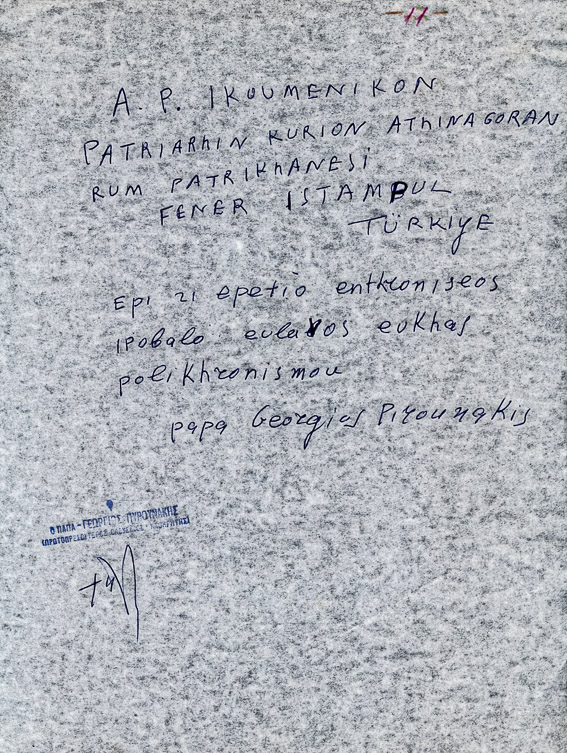 -11-
A. P. IKOUMENIKON
PATRIARHIN KURION ATHINAGORAN
RUM PATRIKHANESi
FENER ISTAMBUL
TÜRKIYE
Epi ti epetio enthroniseos
ipobalo evlavos evkhas
polikhronismou
papa Georgios Pirounakis
Ο ΠΑΠΑ-ΓΕΩΡΓΙΟΣ ΠΥΡΟΥΝΑΚΗΣ